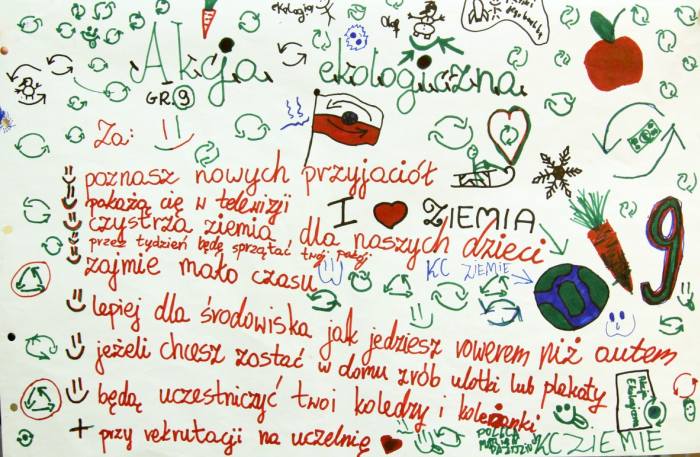 ekologia
Okop
Akcja ekologiczna
GR. 9
Za:
poznasz nowych przyjaciół
pokażą cię w telewizji
I ZIEMIA
czystrza ziemia dla naszych dzieci
przez tydzień będę sprzątać twój pokój
zajmie mało czasu
KC ZIEMIE
9
lepiej dla środowiska jak jedziesz rowerem niż autem
jeżeli chcesz zostać w domu zrób ulotki lub plakaty
będą uczestniczyć twoi koledzy i koleżanki
Akcja Ekologiczna
+ przy rekrutacji na uczelnię
POLECA
KC ZIEMIE